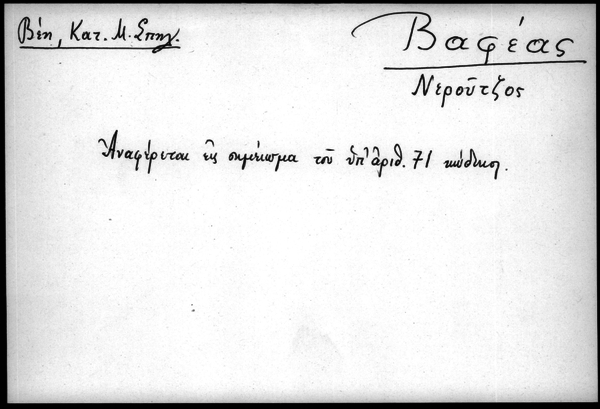 Βέη, Κατ. Μ. Σπηλ.
Βαφέας
Νερούτζος
Ἀναφέρεται εἰς σημείωμα τοῦ ὑπ' ἀριθ. 71 κώδικος.